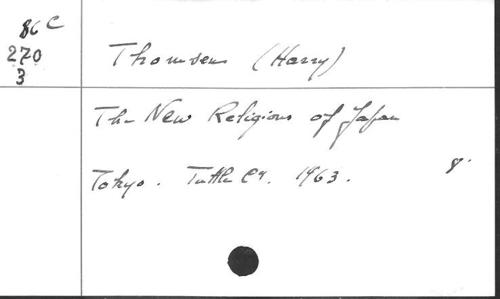 86 C
270
3
Thomsen (Harry)
The New Religions of Japan
Tokyo. Tuttle Co. 1963. 8.